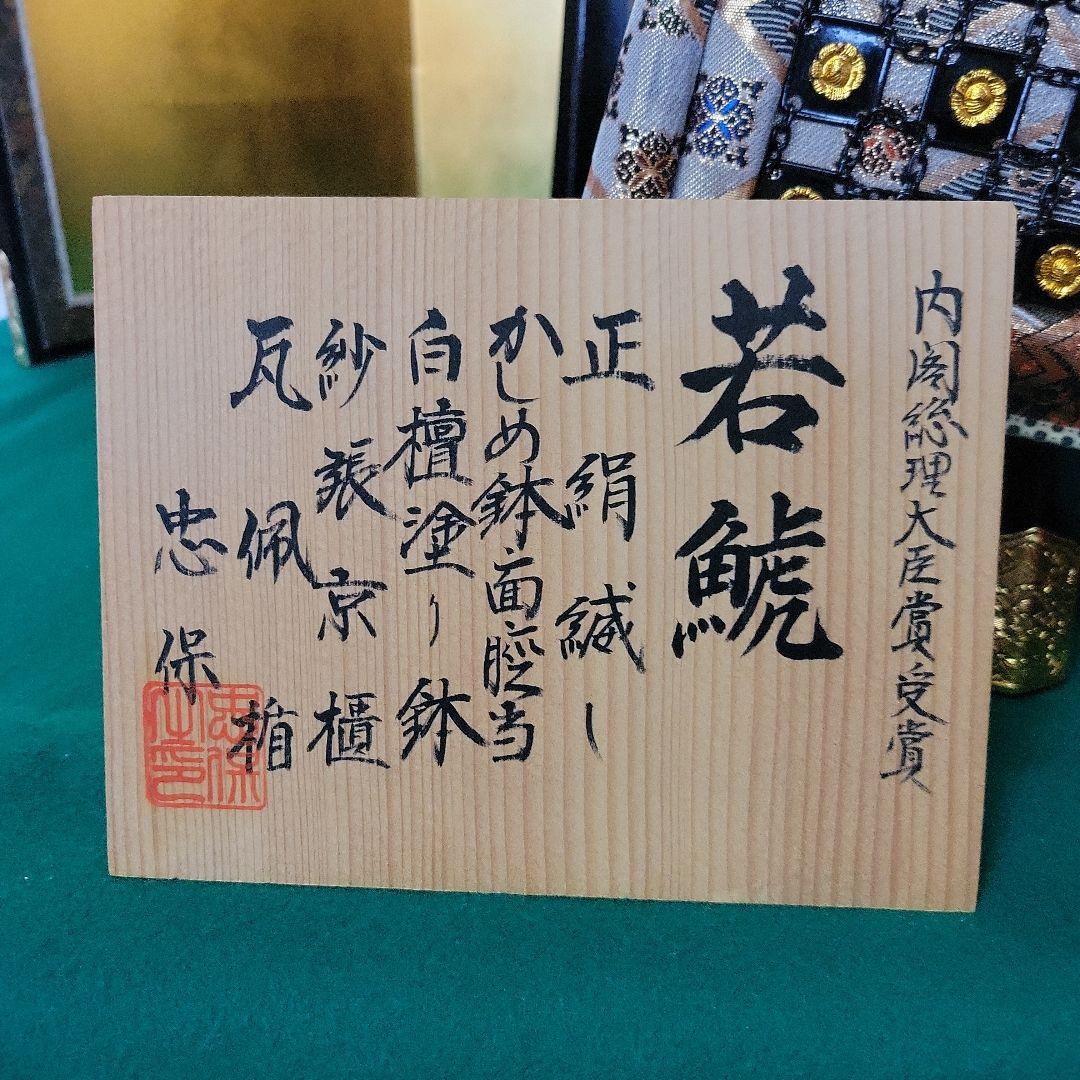 内閣総理大臣賞受賞
若鯱
正絹縅し
かしめ鉢面脛当
白檀塗り鉢
紗張京櫃
瓦佩楯
忠保
忠保之印